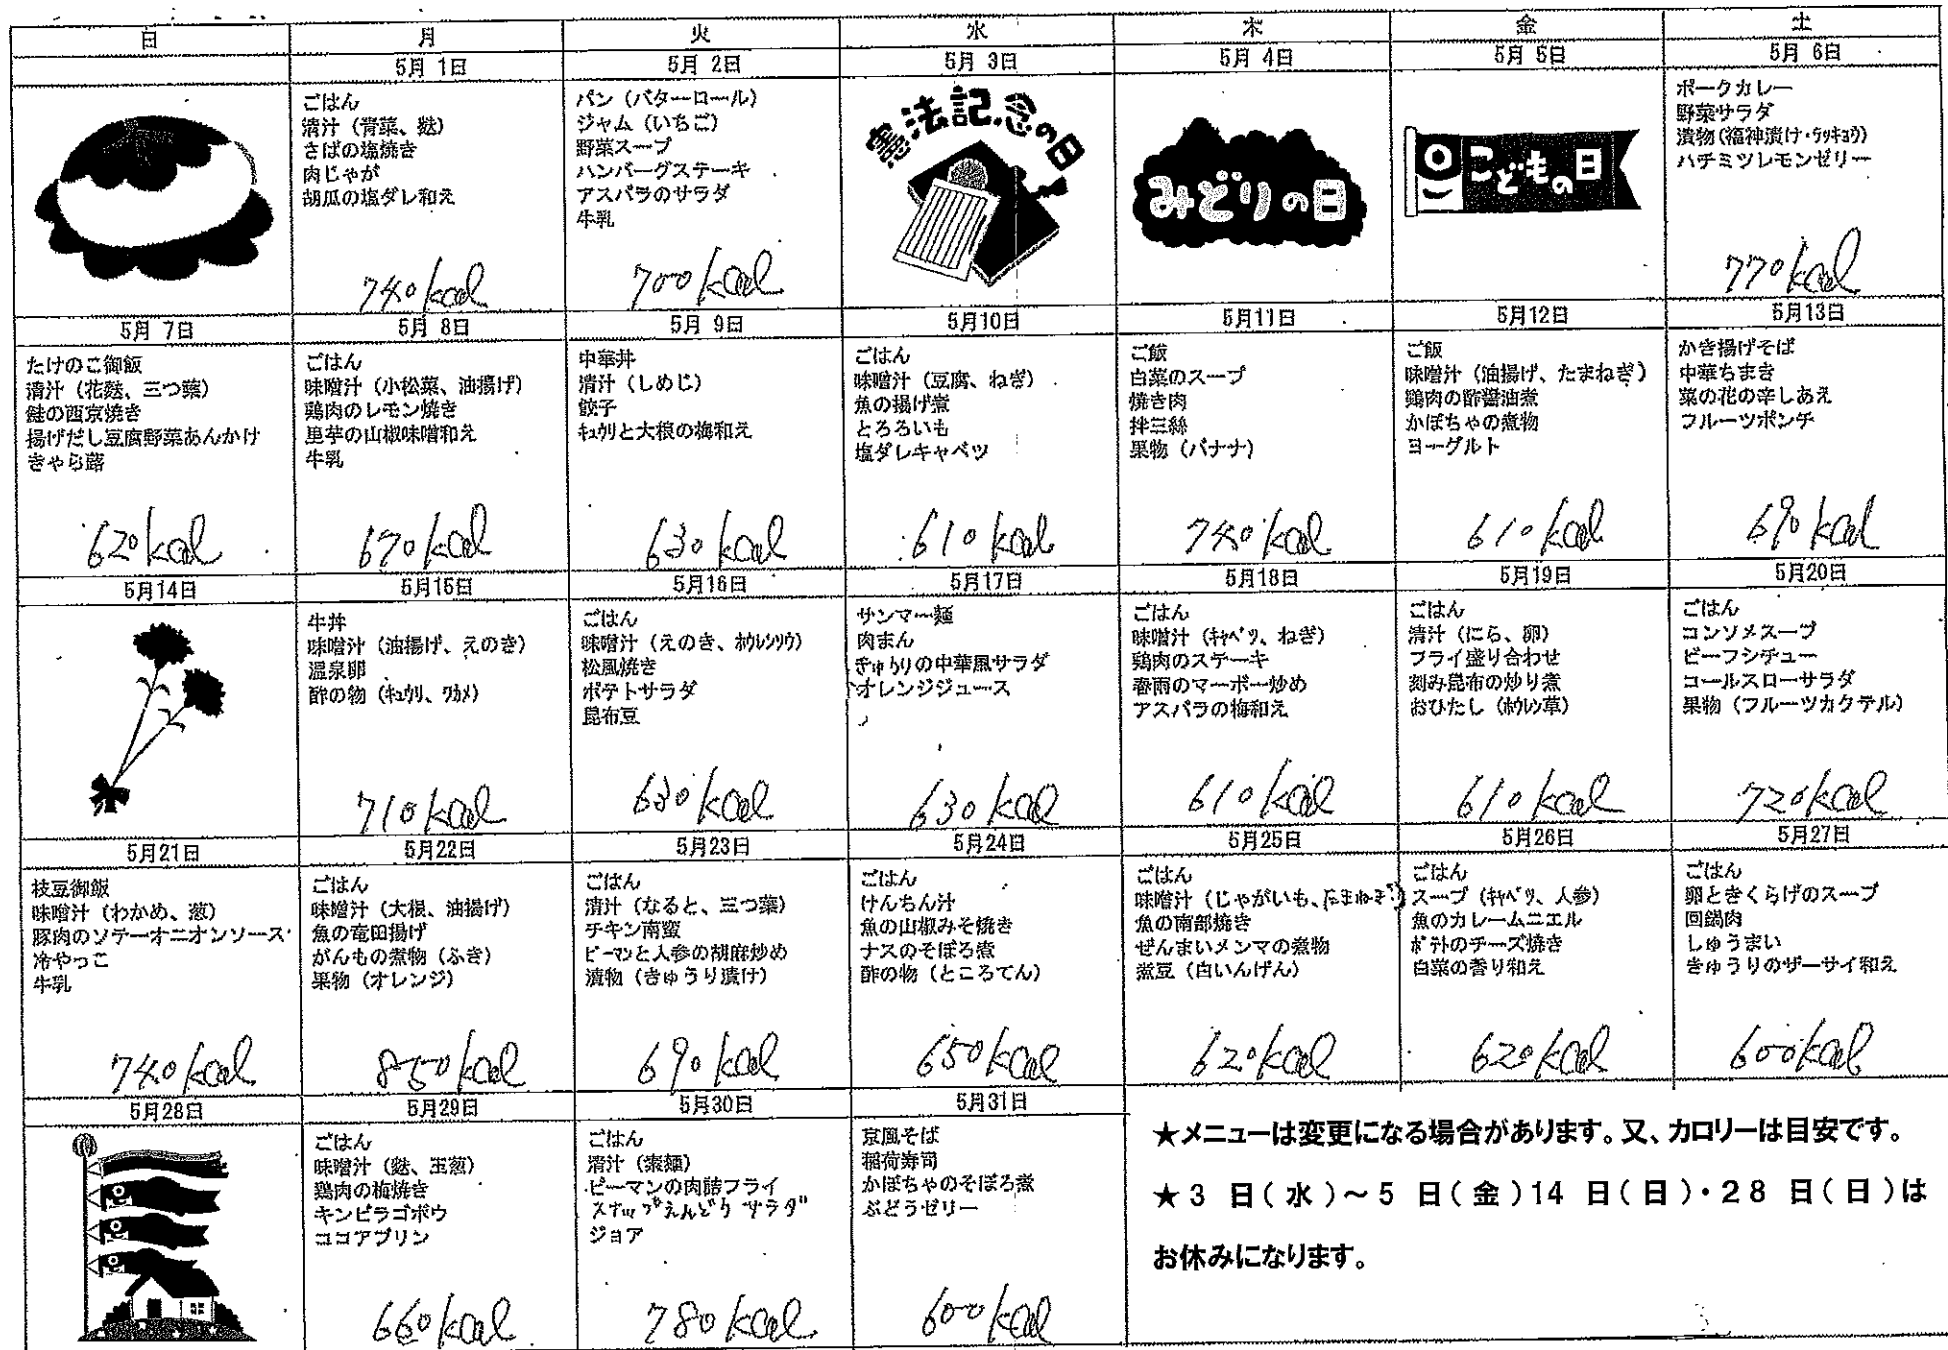 日
月
火
水
木
金
土
5月 1日
5月 2日
5月 3日
5月 4日
5月 5日
5月 6日
ごはん
清汁（青菜、麩）
さばの塩焼き
肉じゃが
胡瓜の塩ダレ和え
740kcal
パン（バターロール）
ジャム（いちご）
野菜スープ
ハンバーグステーキ
アスパラのサラダ
牛乳
700kcal
憲法記念の日
みどりの日
こどもの日
ポークカレー
野菜サラダ
漬物(福神漬け・ラッキョウ)
ハチミツレモンゼリー
770kcal
5月 7日
5月 8日
5月 9日
5月10日
5月11日
5月12日
5月13日
たけのこ御飯
清汁（花麩、三つ葉）
鮭の西京焼き
揚げだし豆腐野菜あんかけ
きゃら蕗
620kcal
ごはん
味噌汁（小松菜、油揚げ）
鶏肉のレモン焼き
里芋の山椒味噌和え
牛乳
670kcal
中華丼
清汁（しめじ）
餃子
キュウリと大根の梅和え
630kcal
ごはん
味噌汁（豆腐、ねぎ）
魚の揚げ煮
とろろいも
塩ダレキャベツ
610kcal
ご飯
白菜のスープ
焼き肉
拌三絲
果物（バナナ）
740kcal
ご飯
味噌汁（油揚げ、たまねぎ）
鶏肉の酢醤油煮
かぼちゃの煮物
ヨーグルト
610kcal
かき揚げそば
中華ちまき
菜の花の辛しあえ
フルーツポンチ
690kcal
5月14日
5月15日
5月16日
5月17日
5月18日
5月19日
5月20日
牛丼
味噌汁（油揚げ、えのき）
温泉卵
酢の物（キュウリ、ワカメ）
710kcal
ごはん
味噌汁（えのき、ホウレンソウ）
松風焼き
ポテトサラダ
昆布豆
630kcal
サンマー麺
肉まん
きゅうりの中華風サラダ
オレンジジュース
630kcal
ごはん
味噌汁（キャベツ、ねぎ）
鶏肉のステーキ
春雨のマーボー炒め
アスパラの梅和え
610kcal
ごはん
清汁（にら、卵）
フライ盛り合わせ
刻み昆布の炒り煮
おひたし（ホウレン草）
610kcal
ごはん
コンソメスープ
ビーフシチュー
コールスローサラダ
果物（フルーツカクテル）
720kcal
5月21日
5月22日
5月23日
5月24日
5月25日
5月26日
5月27日
枝豆御飯
味噌汁（わかめ、葱）
豚肉のソテーオニオンソース
冷やっこ
牛乳
740kcal
ごはん
味噌汁（大根、油揚げ）
魚の竜田揚げ
がんもの煮物（ふき）
果物（オレンジ）
850kcal
ごはん
清汁（なると、三つ葉）
チキン南蛮
ピーマンと人参の胡麻炒め
漬物（きゅうり漬け）
690kcal
ごはん
けんちん汁
魚の山椒みそ焼き
ナスのそぼろ煮
酢の物（ところてん）
650kcal
ごはん
味噌汁（じゃがいも、たまねぎ）
魚の南部焼き
ぜんまいメンマの煮物
煮豆（白いんげん）
620kcal
ごはん
スープ（キャベツ、人参）
魚のカレームニエル
ポテトのチーズ焼き
白菜の香り和え
620kcal
ごはん
卵ときくらげのスープ
回鍋肉
しゅうまい
きゅうりのザーサイ和え
600kcal
5月28日
5月29日
5月30日
5月31日
ごはん
味噌汁（麩、玉葱）
鶏肉の梅焼き
キンピラゴボウ
ココアプリン
660kcal
ごはん
清汁（素麺）
ピーマンの肉詰フライ
スナップえんどうサラダ
ジョア
780kcal
京風そば
稲荷寿司
かぼちゃのそぼろ煮
ぶどうゼリー
600kcal
★メニューは変更になる場合があります。又、カロリーは目安です。
★3 日(水)～5 日(金)14 日(日)・28 日(日)は
お休みになります。